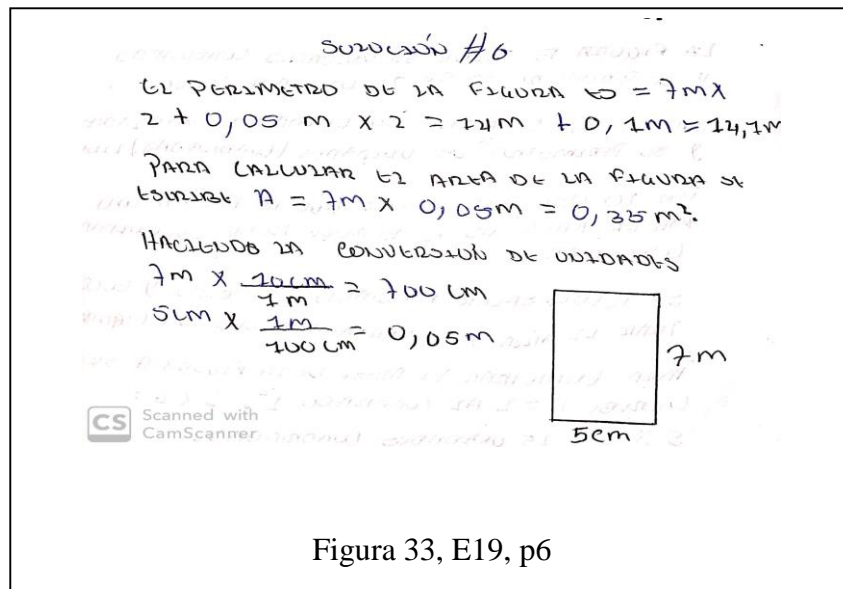 SOLUCIÓN #6
EL PERIMETRO DE LA FIGURA ES = 7m X
2 + 0,05 m x 2 = 14m + 0,1m = 14,1m
PARA CALCULAR EL AREA DE LA FIGURA SE
ESCRIBE A = 7m X 0,05m = 0,35 m².
HACIENDO LA CONVERSIÓN DE UNIDADES
7m X 10cm / 1m = 700 cm
5cm X 1m / 100cm = 0,05m
7m
5cm
CS Scanned with
CamScanner
Figura 33, E19, p6